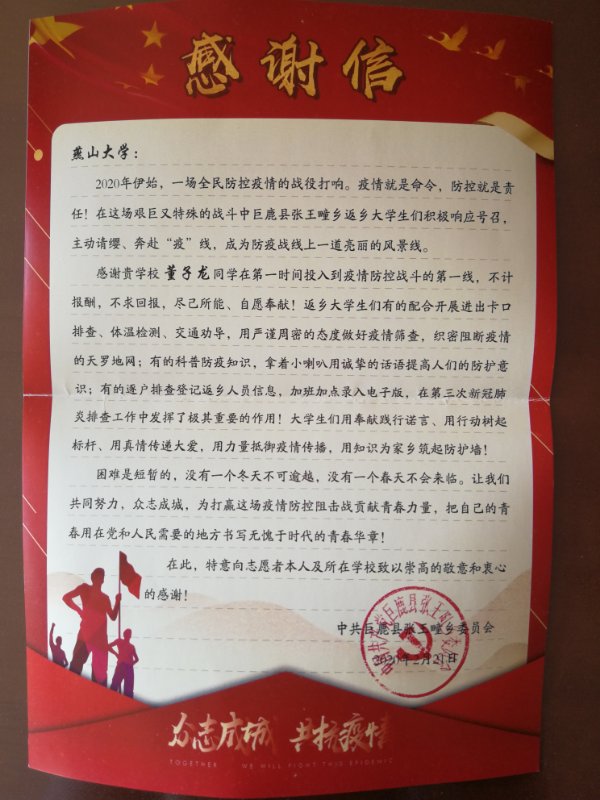 感谢信
燕山大学：
2020年伊始，一场全民防控疫情的战役打响。疫情就是命令，防控就是责
任！在这场艰巨又特殊的战斗中巨鹿县张王疃乡返乡大学生们积极响应号召，
主动请缨、奔赴“疫”线，成为防疫战线上一道亮丽的风景线。
感谢贵学校 董子龙 同学在第一时间投入到疫情防控战斗的第一线，不计
报酬，不求回报，尽己所能、自愿奉献！返乡大学生们有的配合开展进出卡口
排查、体温检测、交通劝导，用严谨周密的态度做好疫情筛查，织密阻断疫情
的天罗地网；有的科普防疫知识，拿着小喇叭用诚挚的话语提高人们的防护意
识；有的逐户排查登记返乡人员信息，加班加点录入电子版，在第三次新冠肺
炎排查工作中发挥了极其重要的作用！大学生们用奉献践行诺言、用行动树起
标杆、用真情传递大爱，用力量抵御疫情传播，用知识为家乡筑起防护墙！
困难是短暂的，没有一个冬天不可逾越，没有一个春天不会来临。让我们
共同努力，众志成城，为打赢这场疫情防控阻击战贡献青春力量，把自己的青
春用在党和人民需要的地方书写无愧于时代的青春华章！
在此，特意向志愿者本人及所在学校致以崇高的敬意和衷心
的感谢！
中共巨鹿县张王疃乡委员会
2020年2月21日
众志成城 共抗疫情
TOGETHER WE WILL FIGHT THIS EPIDEMIC